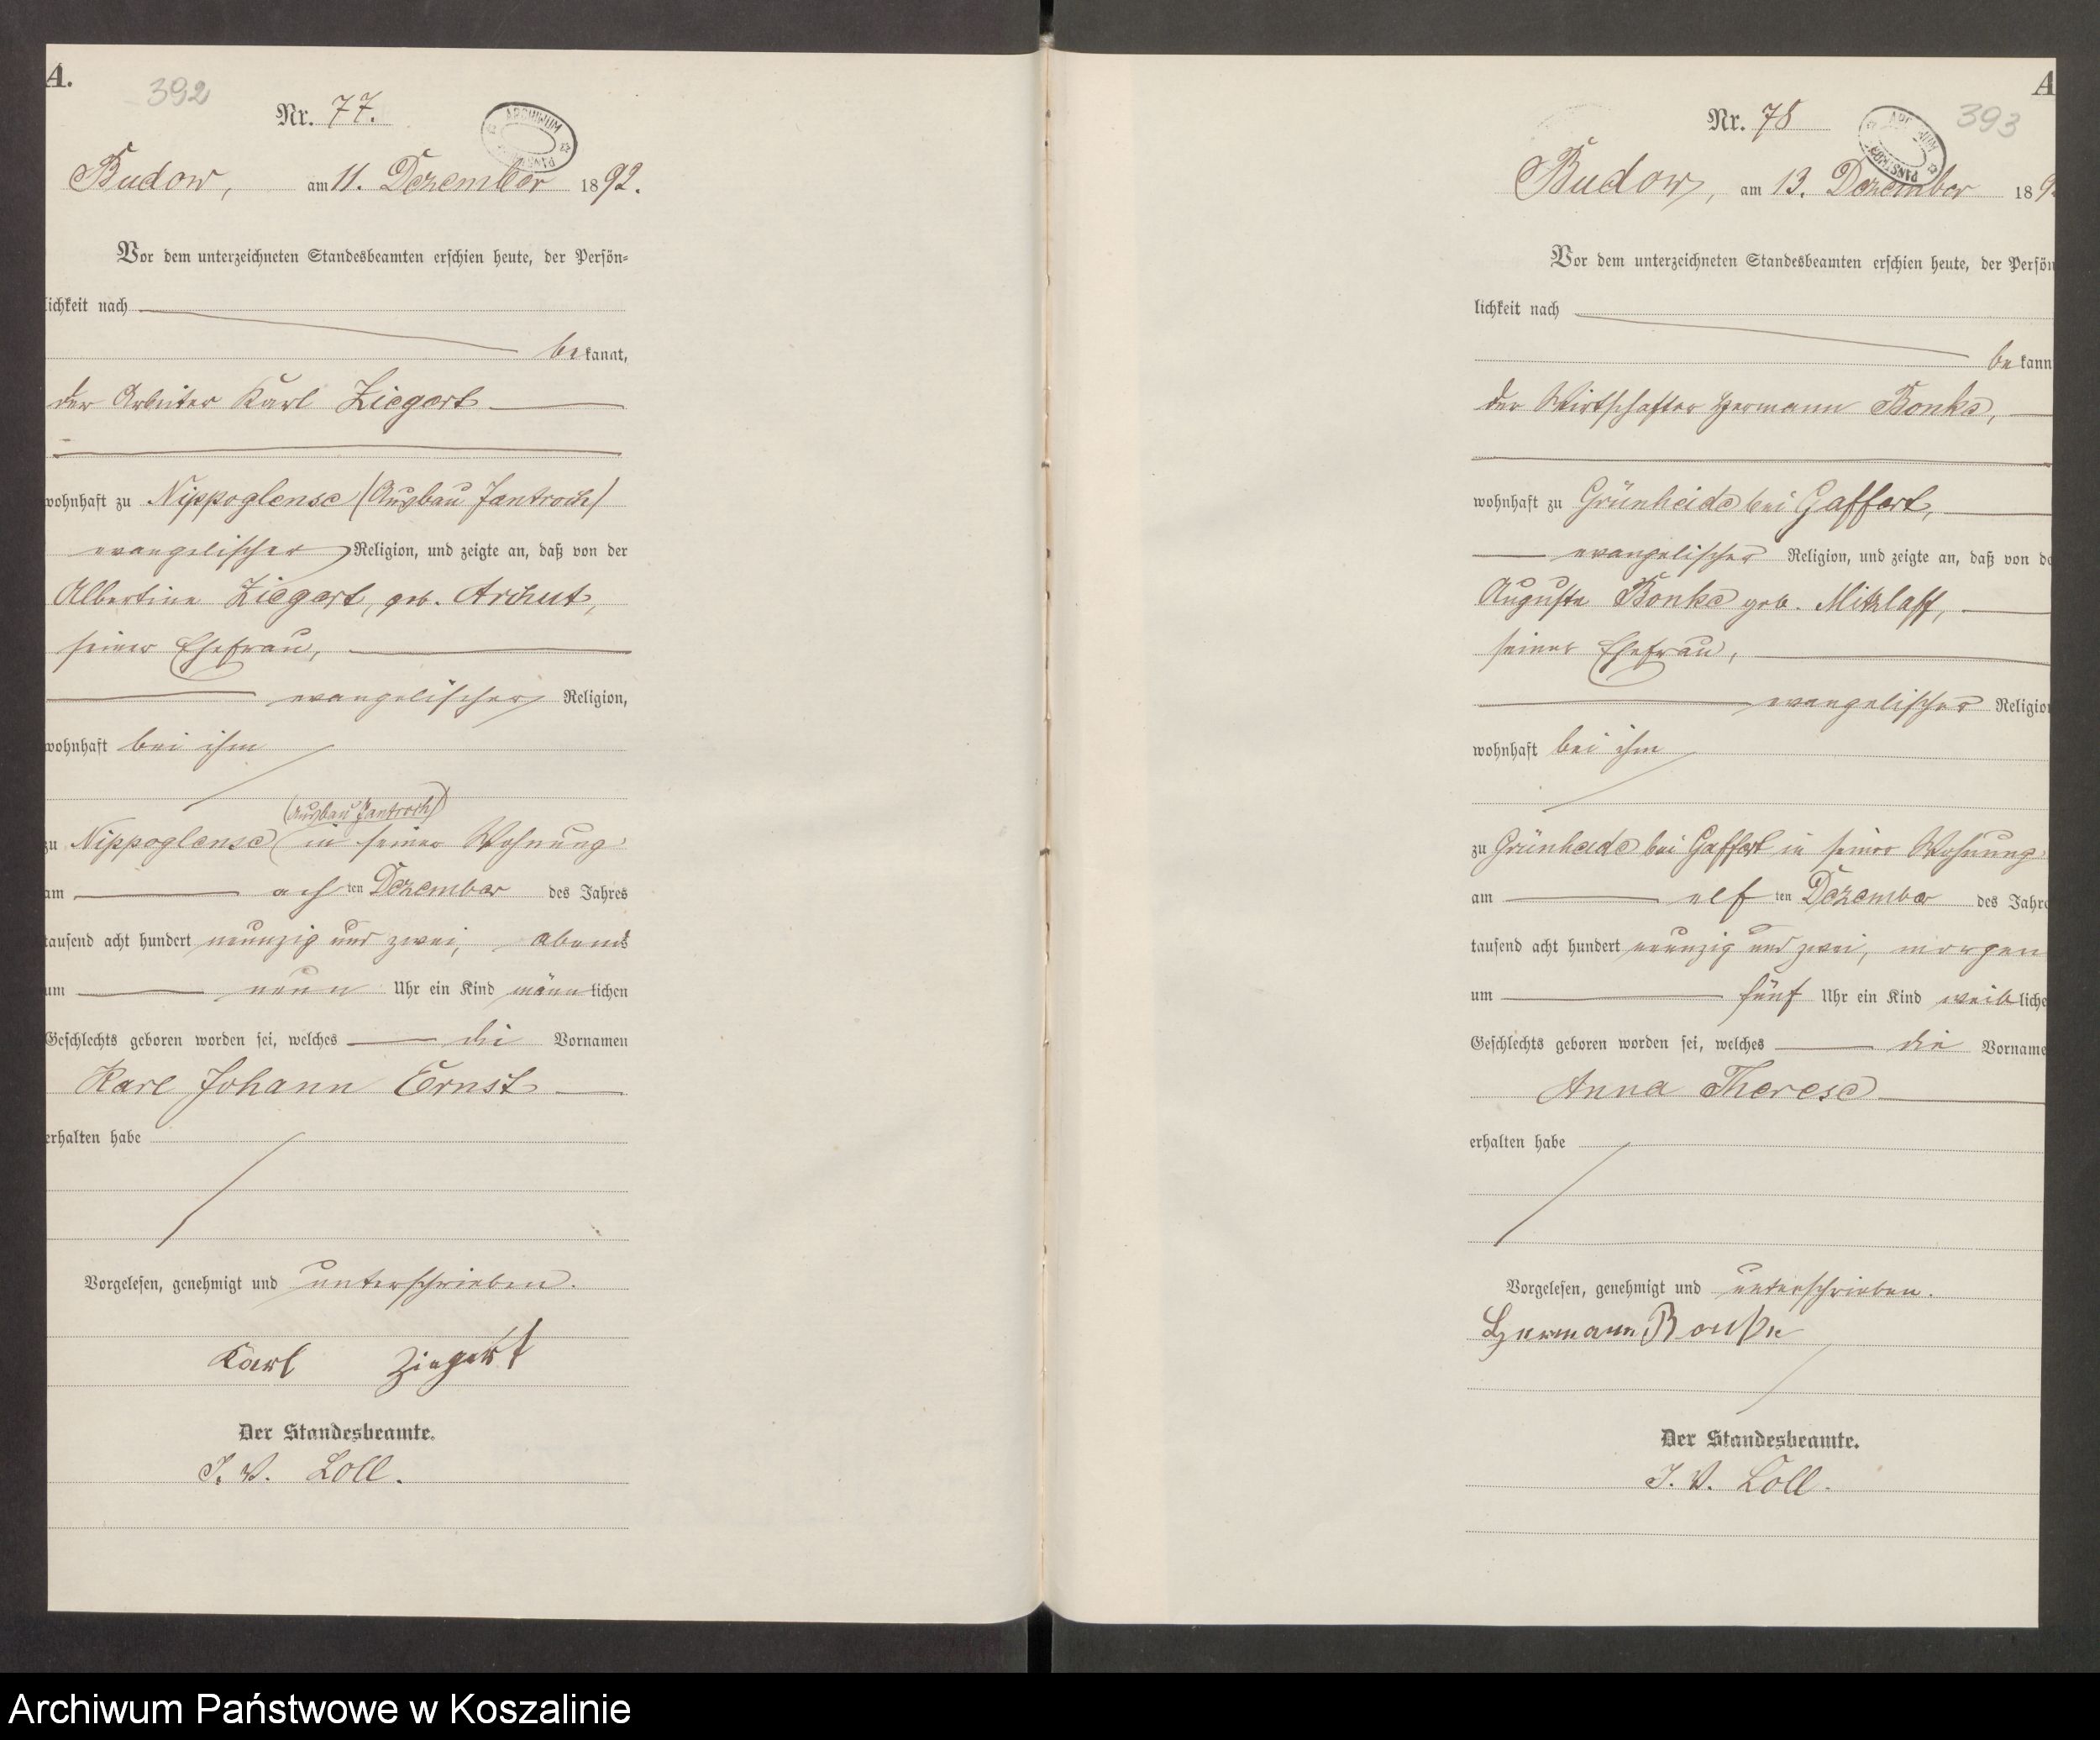 A.
392
Nr. 77.
ARCHIWUM PAŃSTW
Budow, am 11. Dezember 1892.
Vor dem unterzeichneten Standesbeamten erschien heute, der Persön-
lichkeit nach
bekannt,
der Arbeiter Karl Ziegert
wohnhaft zu Nippoglense (Ausbau Jantroch)
evangelischer Religion, und zeigte an, daß von der
Albertine Ziegert, geb. Archut,
seiner Ehefrau,
evangelischer Religion,
wohnhaft bei ihm
(Ausbau Jantroch)
zu Nippoglense in seiner Wohnung
am achten Dezember des Jahres
tausend acht hundert neunzig und zwei, abends
um neun Uhr ein Kind männlichen
Geschlechts geboren worden sei, welches die Vornamen
Karl Johann Ernst
erhalten habe
Vorgelesen, genehmigt und unterschrieben.
Karl Ziegert
Der Standesbeamte.
J. V. Loll.
A
393
Nr. 78
Budow, am 13. Dezember 189
Vor dem unterzeichneten Standesbeamten erschien heute, der Persön
lichkeit nach
bekann
der Wirtschafter Hermann Bonke,
wohnhaft zu Grünheide bei Gaffert,
evangelischer Religion, und zeigte an, daß von de
Auguste Bonke geb. Mitzlaff,
seiner Ehefrau,
evangelischer Religion
wohnhaft bei ihm
zu Grünheide bei Gaffert in seiner Wohnung
am elften Dezember des Jahre
tausend acht hundert neunzig und zwei, morgen
um fünf Uhr ein Kind weibliche
Geschlechts geboren worden sei, welches die Vorname
Anna Therese
erhalten habe
Vorgelesen, genehmigt und unterschrieben.
Hermann Bonke
Der Standesbeamte.
J. V. Loll.
Archiwum Państwowe w Koszalinie